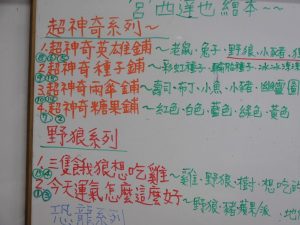 宮西達也繪本~~
超神奇系列~
1.超神奇英雄鋪~老鼠、兔子、野狼、小豬、
2.超神奇種子鋪~彩虹種子、輪胎種子、冰
3.超神奇雨傘鋪~壽司、布丁、小魚、小豬、幽靈
4.超神奇糖果鋪~紅色、白色、藍色、綠色、黃色
野狼系列
1.三隻餓狼想吃雞~雞、野狼、樹、想吃
2.今天運氣怎麼這麼好~野狼、豬、蘋果
恐龍系列